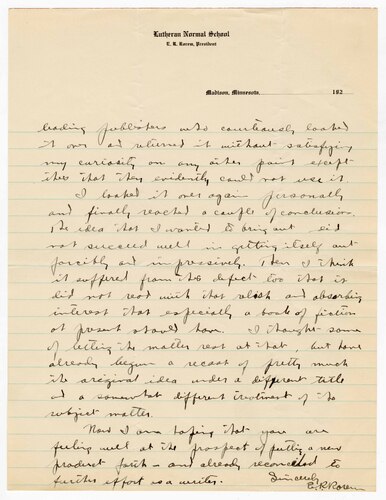 Lutheran Normal School
E. R. Rorem, President
Madison, Minnesota, 192
leading publishers who courteously looked
it over and returned it without satisfying
my curiosity on any other point except
this that they evidently could not use it
I looked it over again personally
and finally reached a couple of conclusions.
The idea that I wanted to bring out did
not succeed well in getting itself out
forcibly and impressively. Then I think
it suffered from the defect too that it
did not read with that and absorbing
interest that especially a book of fiction
at present should have. I thought some
of letting the matter rest at that, but have
already begun a recast of pretty much
the original idea under a different title
and a somewhat different treatment of the
subject matter.
Now I am hoping that you are
feeling well at the prospect of putting a new
product forth - and already reconciled to
further effort as a writer.
Sincerely
E. R. Rorem